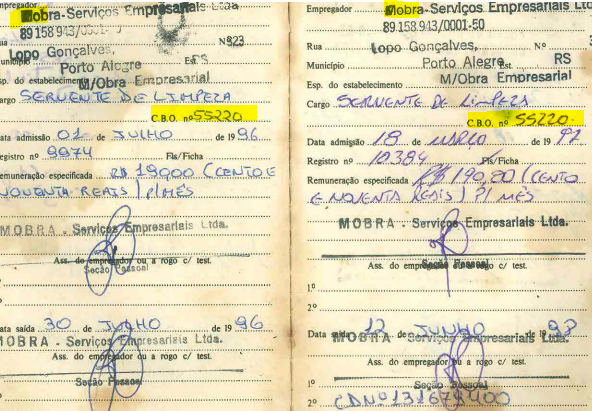 Empregador Mobra-Serviços Empresariais Ltda
89158943/0001-
Nº 823
Lopo Gonçalves,
Município Porto Alegre Est. RS
Esp. do estabelecimento M/Obra Empresarial
Cargo SERVENTE DE LIMPEZA
C.B.O. nº 55220
Data admissão 01 de JULHO de 1996
Registro nº 9974 Fls/Ficha
Remuneração especificada R$ 190,00 (CENTO E
NOVENTA REAIS) P/MÊS
MOBRA - Serviços Empresariais Ltda.
Ass. do empregador ou a rogo c/ test.
Seção Pessoal
Data saída 30 de JULHO de 1996
MOBRA - Serviços Empresariais Ltda.
Ass. do empregador ou a rogo c/ test.
Seção Pessoal
2º
Empregador Mobra-Serviços Empresariais Ltd
89.158.943/0001-50
Rua Lopo Gonçalves, Nº
Município Porto Alegre Est. RS
Esp. do estabelecimento M/Obra Empresarial
Cargo SERVENTE DE LIMPEZA
C.B.O. nº 55220
Data admissão 18 de MARÇO de 1997
Registro nº 10384 Fls/Ficha
Remuneração especificada R$ 190,80 (CENTO
E NOVENTA REAIS) P/ MÊS
MOBRA - Serviços Empresariais Ltda.
Ass. do empregador ou a rogo c/ test.
Seção Pessoal
1º
2º
Data saída 12 de JUNHO de 1997
MOBRA - Serviços Empresariais Ltda.
Ass. do empregador ou a rogo c/ test.
Seção Pessoal
1º
2º CD Nº 131679400